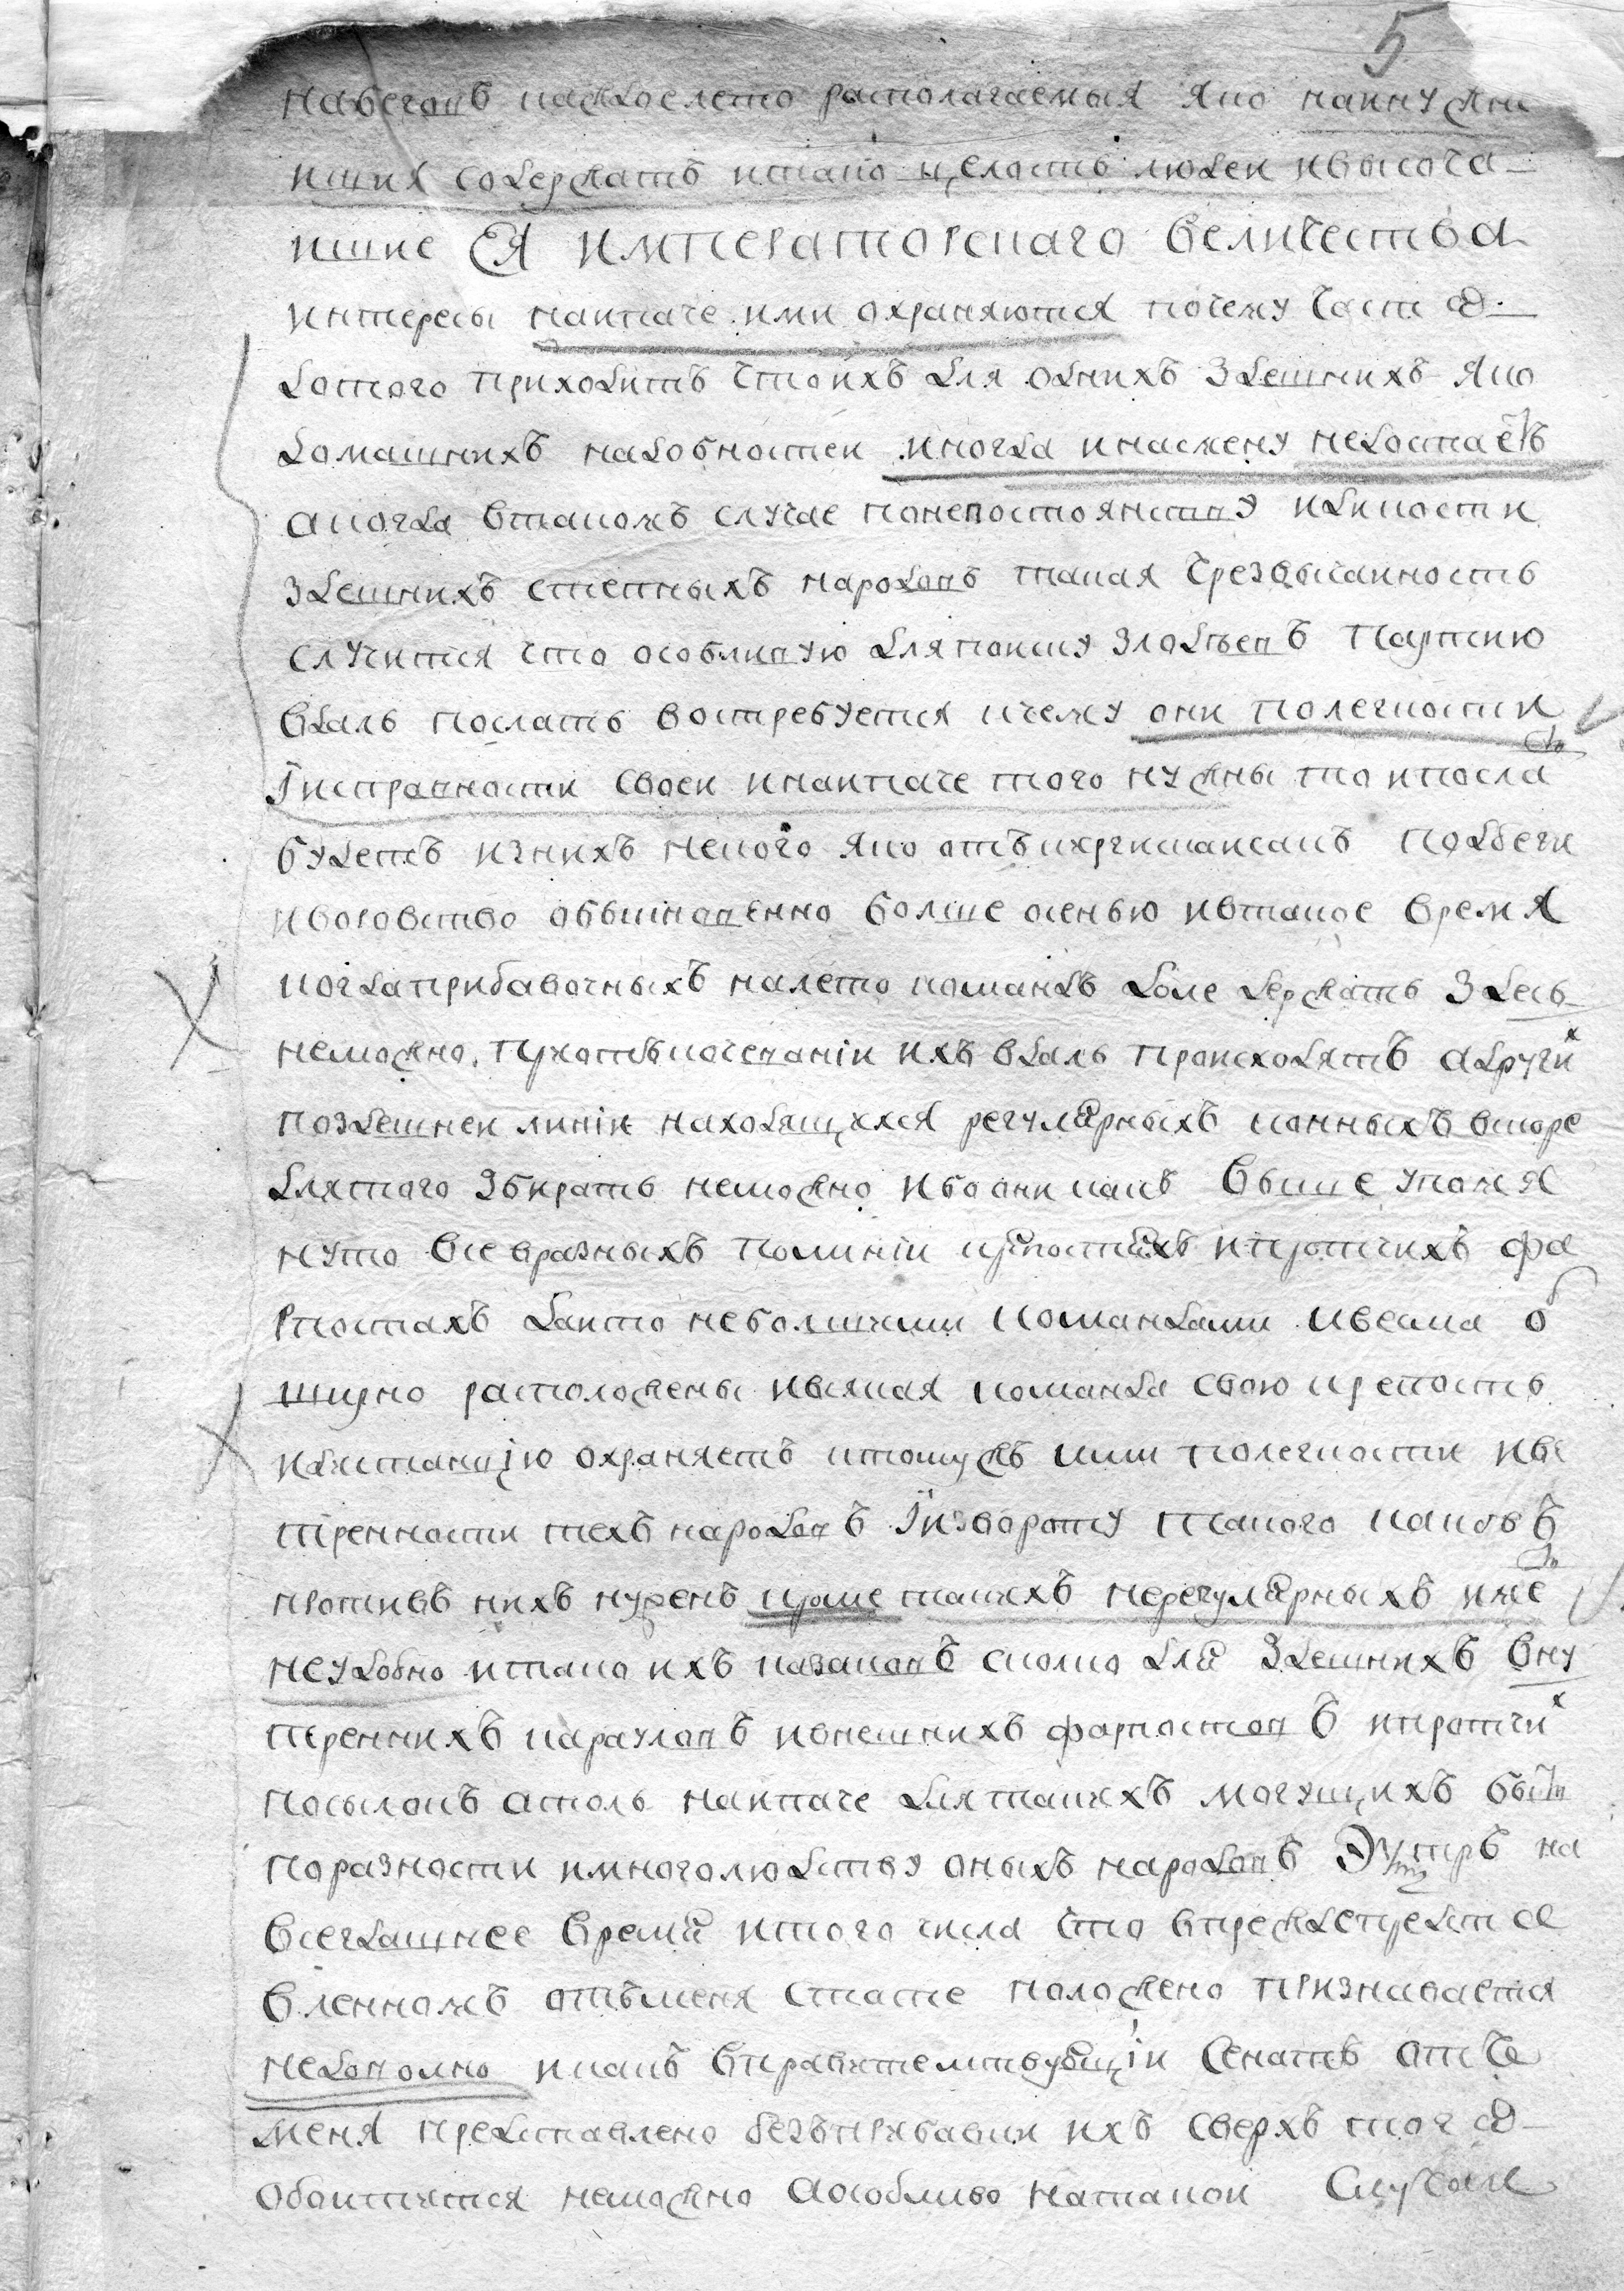 5
набеговъ накаждое лето располагаемыя яко наинужни
ишия содержатъ итако целость людей ивысоча
ишие Ея Императорскаго Величества
интересы наипаче ими охраняются почему часто
дотого приходитъ что ихъ для однихъ здешнихъ яко
домашнихъ надобностей иногда инасмену недостаетъ
акогда втакомъ случае понепостоянству идикости
здешнихъ степныхъ народовъ такая чрезвычайность
случится что особливую дляпоиску злодеевъ партию
вдаль послать востребуется кчему они полегкости
їисправности своей инаипаче того нужны то ипослать
будетъ изъ нихъ некого яко отъ киргисъкайсакъ подбеги
иворовство обыкновенно больше осенью ивтакое время
когда прибавочныхъ налето командъ доле держать здесь
неможно, прикотькочевании ихъ вдаль происходятъ адругихъ
поздешней линии находящихся регулярныхъ конныхъ вскоре
длятого збирать неможно ибо они какъ выше упомя
нуто все вразныхъ полинии крепостяхъ ипротчихъ фа
рпостахъ дайто небольшими командами ивесма об
ширно расположены ивсякая команда свою крепость
идистанцию охраняетъ ктомужъ ими полегкости иве
тренности техъ народовъ їизвороту такого каковъ
противъ нихъ нуженъ кроме такихъ нерегулярныхъ иметь
неудобно итако ихъ казаковъ сколко для здешнихъ вну
тренних караулов ивнешнихъ фарпостовъ ипротчихъ
посылокъ астоль наипаче длятакихъ могущихъ быть
поразности имноголюдству оныхъ народовъ на
всегдашнее время итого числа что впреждепредста
вленномъ отъменя стате положено признавается
недоволно икакъ вправителствующїи Сенатъ отъ
меня представлено безъприбавки ихъ сверхъ того
обоитится неможно аособливо натакой случай